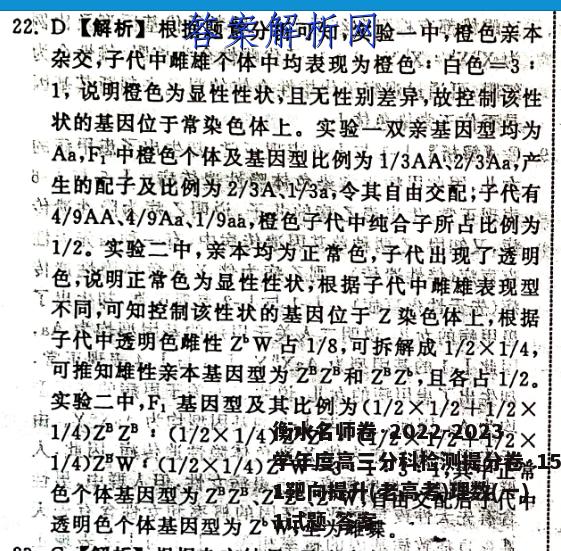 答案解析网
22. D【解析】根据题意分析可知,实验一中,橙色亲本
杂交,子代中雌雄个体中均表现为橙色:白色=3:
1,说明橙色为显性性状,且无性别差异,故控制该性
状的基因位于常染色体上。实验一双亲基因型均为
Aa,F₁中橙色个体及基因型比例为1/3AA、2/3Aa,产
生的配子及比例为2/3A、1/3a,令其自由交配;子代有
4/9AA、4/9Aa、1/9aa,橙色子代中纯合子所占比例为
1/2。实验二中,亲本均为正常色,子代出现了透明
色,说明正常色为显性性状,根据子代中雌雄表现型
不同,可知控制该性状的基因位于Z染色体上,根据
子代中透明色雌性ZᵇW占1/8,可拆解成1/2×1/4,
可推知雄性亲本基因型为ZᴮZᴮ和ZᴮZᵇ,且各占1/2。
实验二中,F₁基因型及其比例为(1/2×1/2+1/2×
1/4)ZᴮZᴮ:(1/2×1/4)
1/4)ZᴮW:(1/2×1/4)
色个体基因型为ZᴮZᴮ、
自由交配后子代中
透明色个体基因型为ZᵇW,
雌蝶。
衡水名师卷·2022-2023
学年度高三分科检测提分卷·15
1靶向提升(老高考)理数(一)
1试题 答案